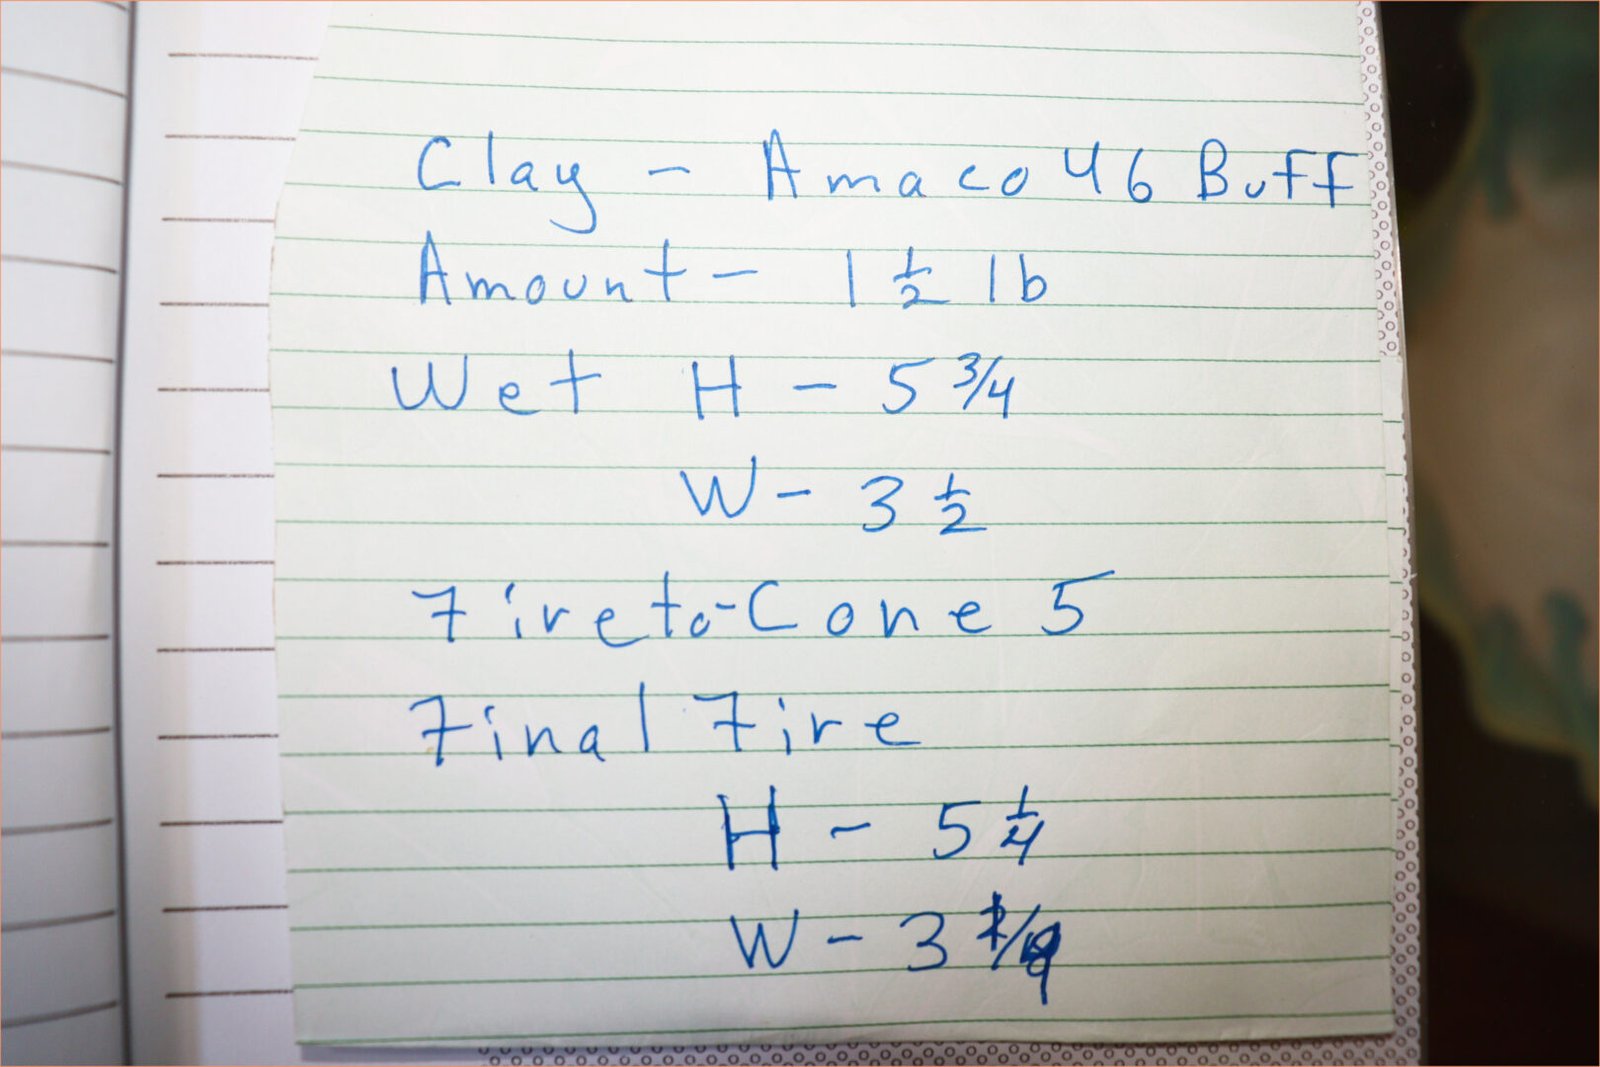 Clay - Amaco 46 Buff
Amount - 1 1/2 lb
Wet H - 5 3/4
W - 3 1/2
Fire to - Cone 5
Final Fire
H - 5 1/4
W - 3